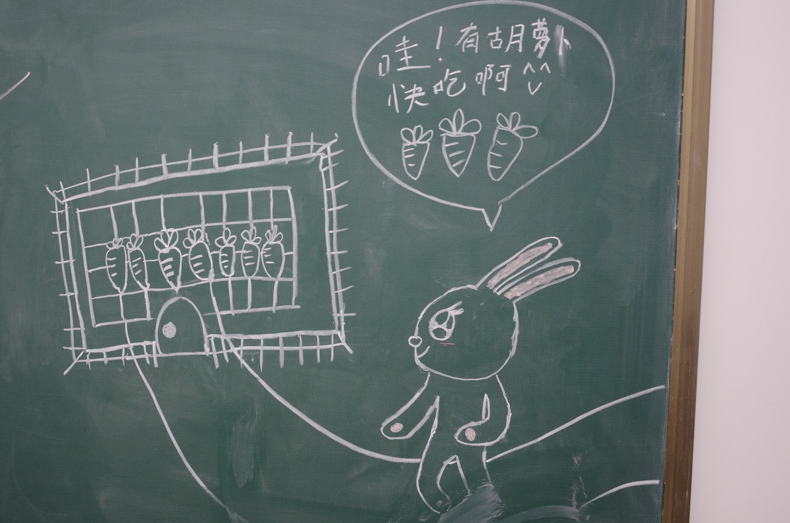 哇！有胡萝卜
快吃啊^^